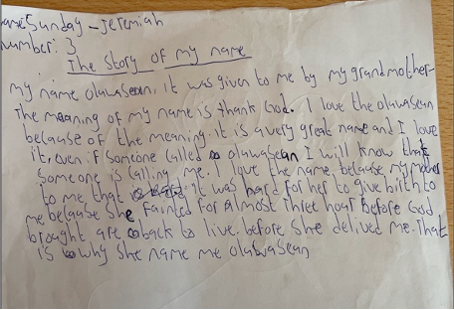 name: Sunday - Jeremiah
number: 3
The Story of my name
my name oluwaseun. it was given to me by my grandmother
The meaning of my name is thank God. I love the oluwasean
because of the meaning. it is a very great name and I love
it. even if someone called oluwasean I will know that
someone is calling me. I love the name. because my mother
to me that it was hard for her to give birth to
me because she fainted for almost three hour before God
brought are back to live. before she delived me. That
is why she name me oluwasean